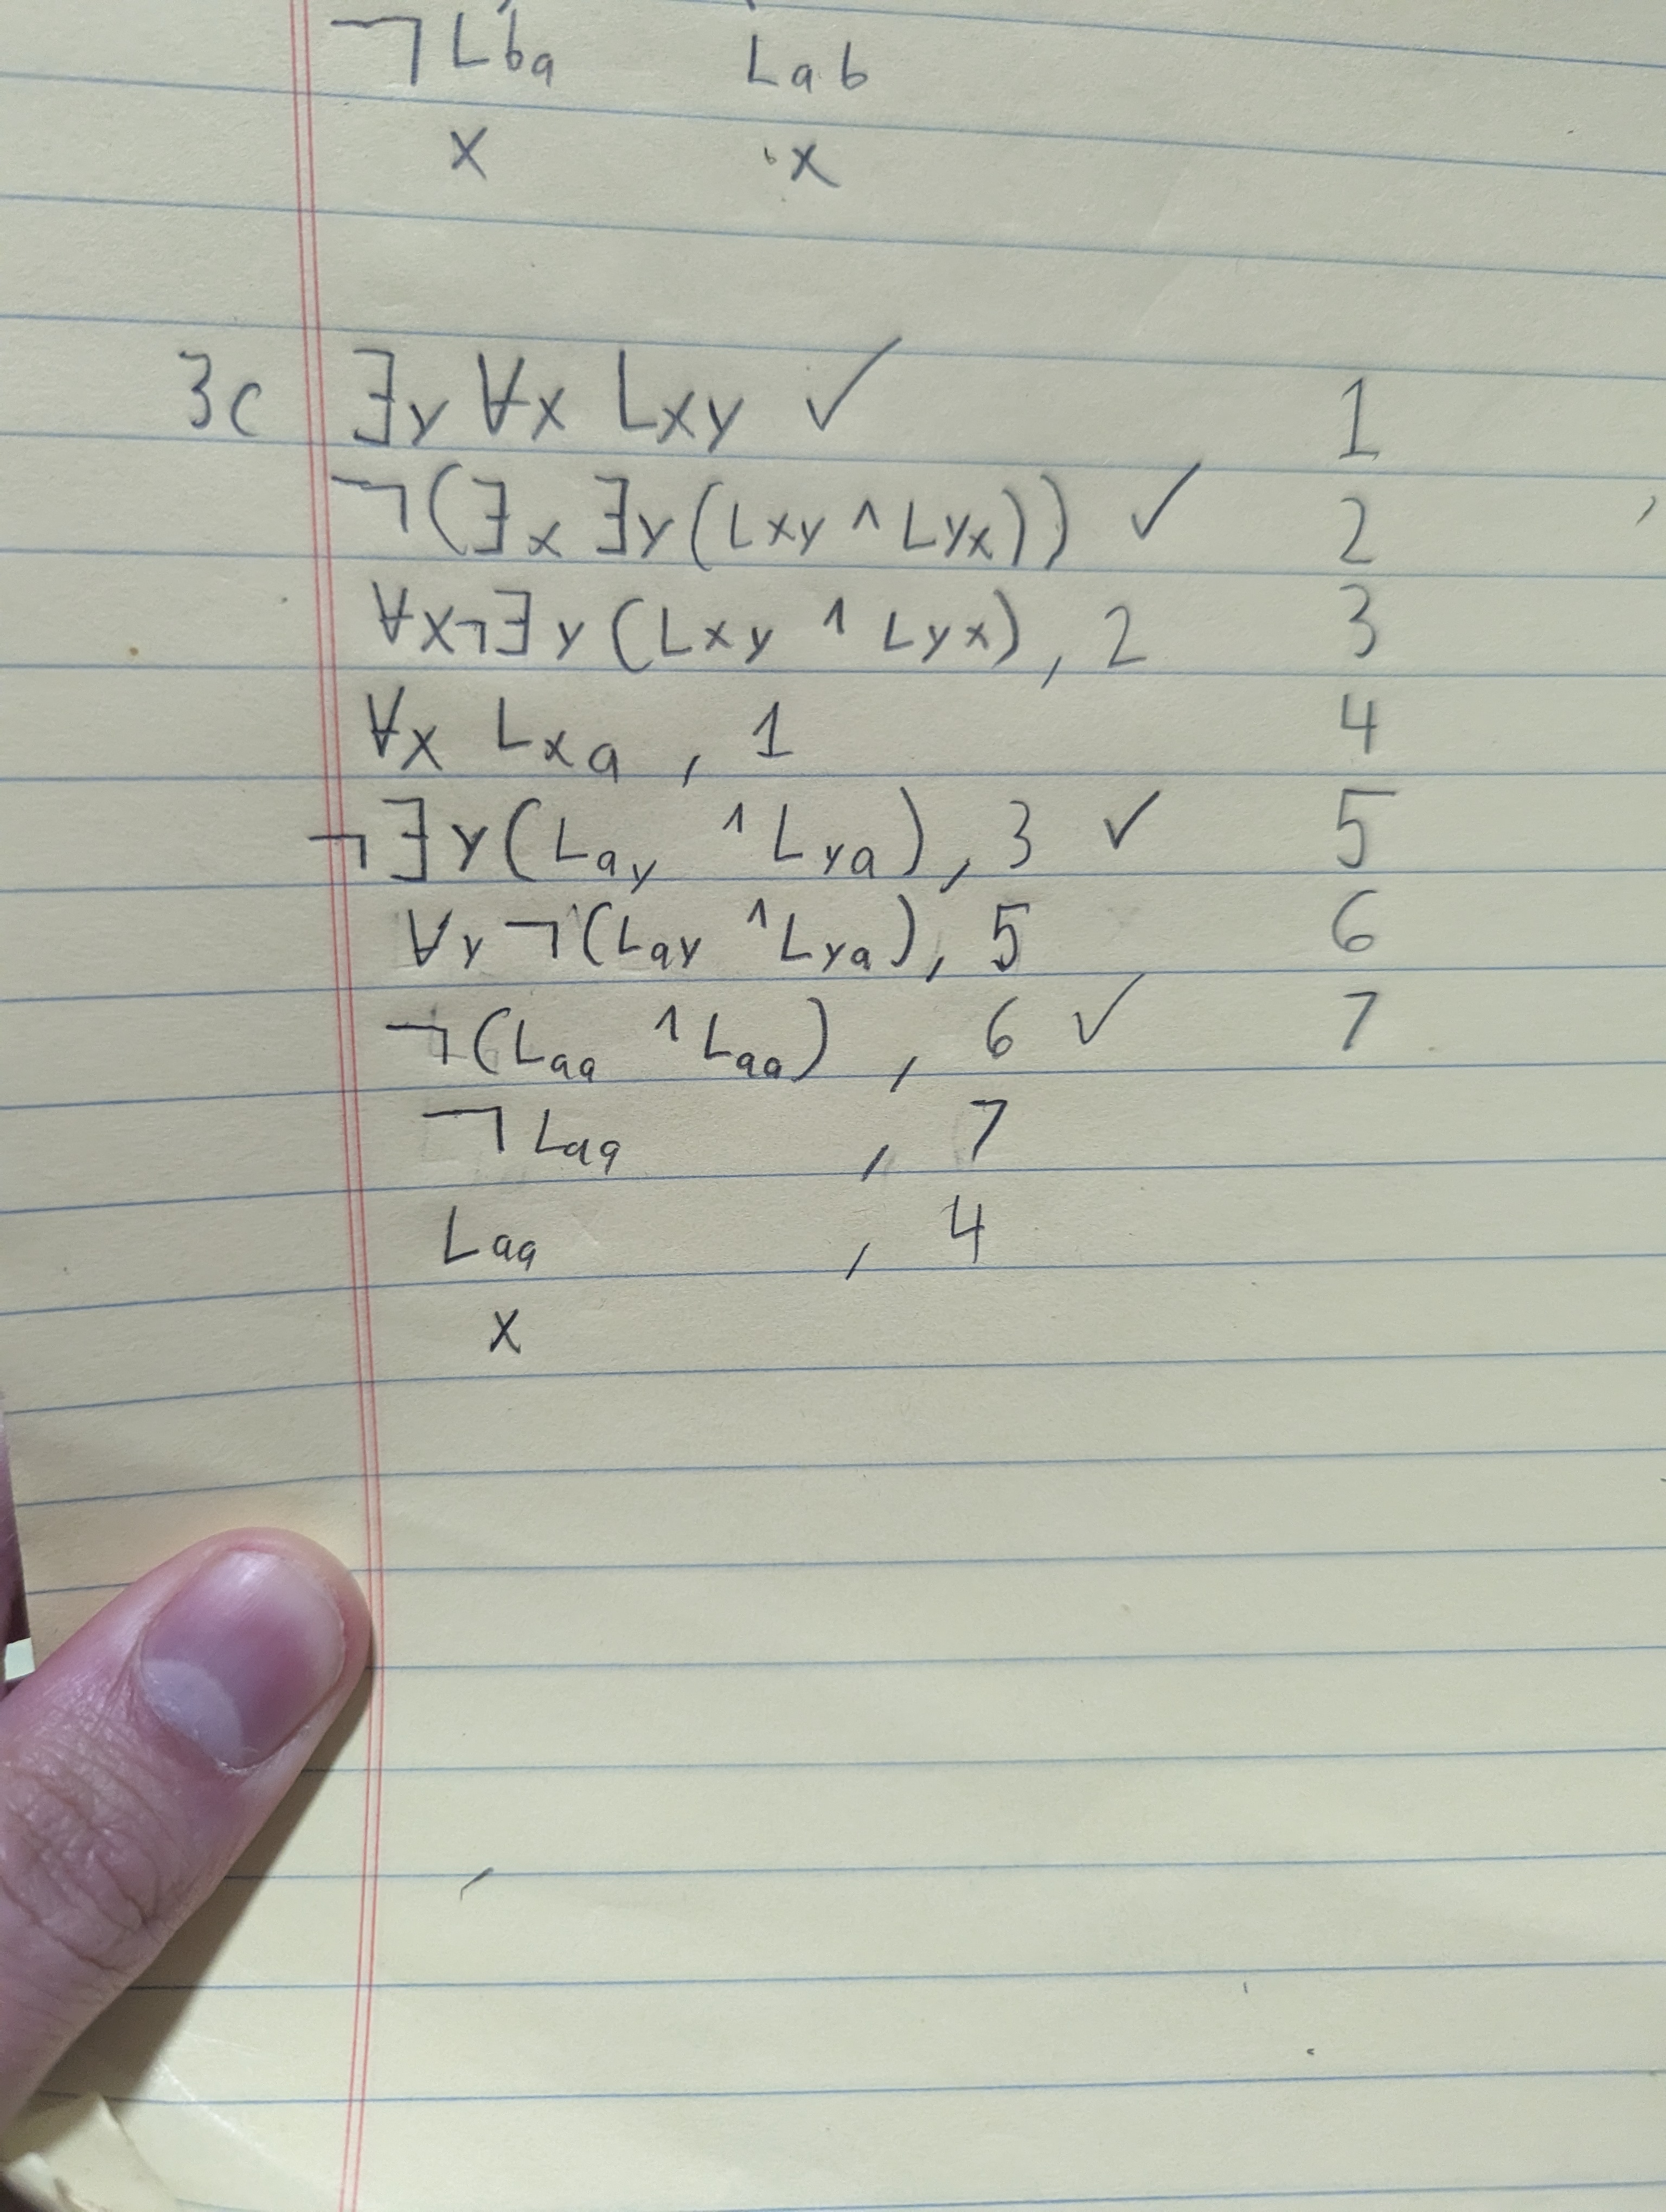 ¬Lba Lab
x x
3c ∃y ∀x Lxy ✓ 1
¬(∃x ∃y(Lxy ∧ Lyx)) ✓ 2
∀x¬∃y(Lxy ∧ Lyx), 2 3
∀x Lxa, 1 4
¬∃y(Lay ∧ Lya), 3 ✓ 5
∀y¬(Lay ∧ Lya), 5 6
¬(Laa ∧ Laa), 6 ✓ 7
¬Laa, 7
Laa, 4
x